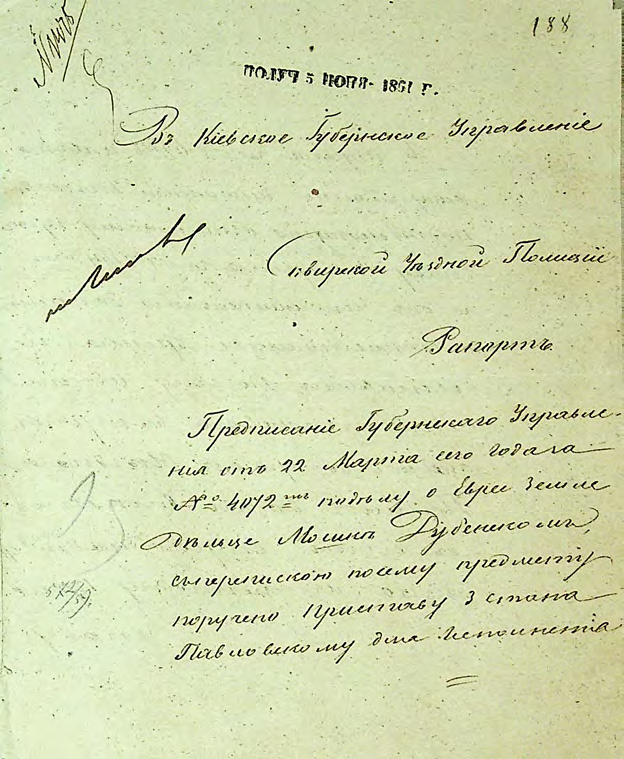 188
ПОЛУЧ 5 ІЮНЯ 1881 Г.
Въ Кіевское Губернское Управленіе
Сквирской Уѣздной Полиціи
Рапортъ.
Предписаніе Губернскаго Управле-
нія отъ 22 Марта сего года за
№ 4072 мъ по дѣлу о Евреѣ Земле
дѣльце Мошкѣ Дубенскомъ,
съ перепискою по сему предмету
поручено Приставу 3 стана
Павловскому для исполненія